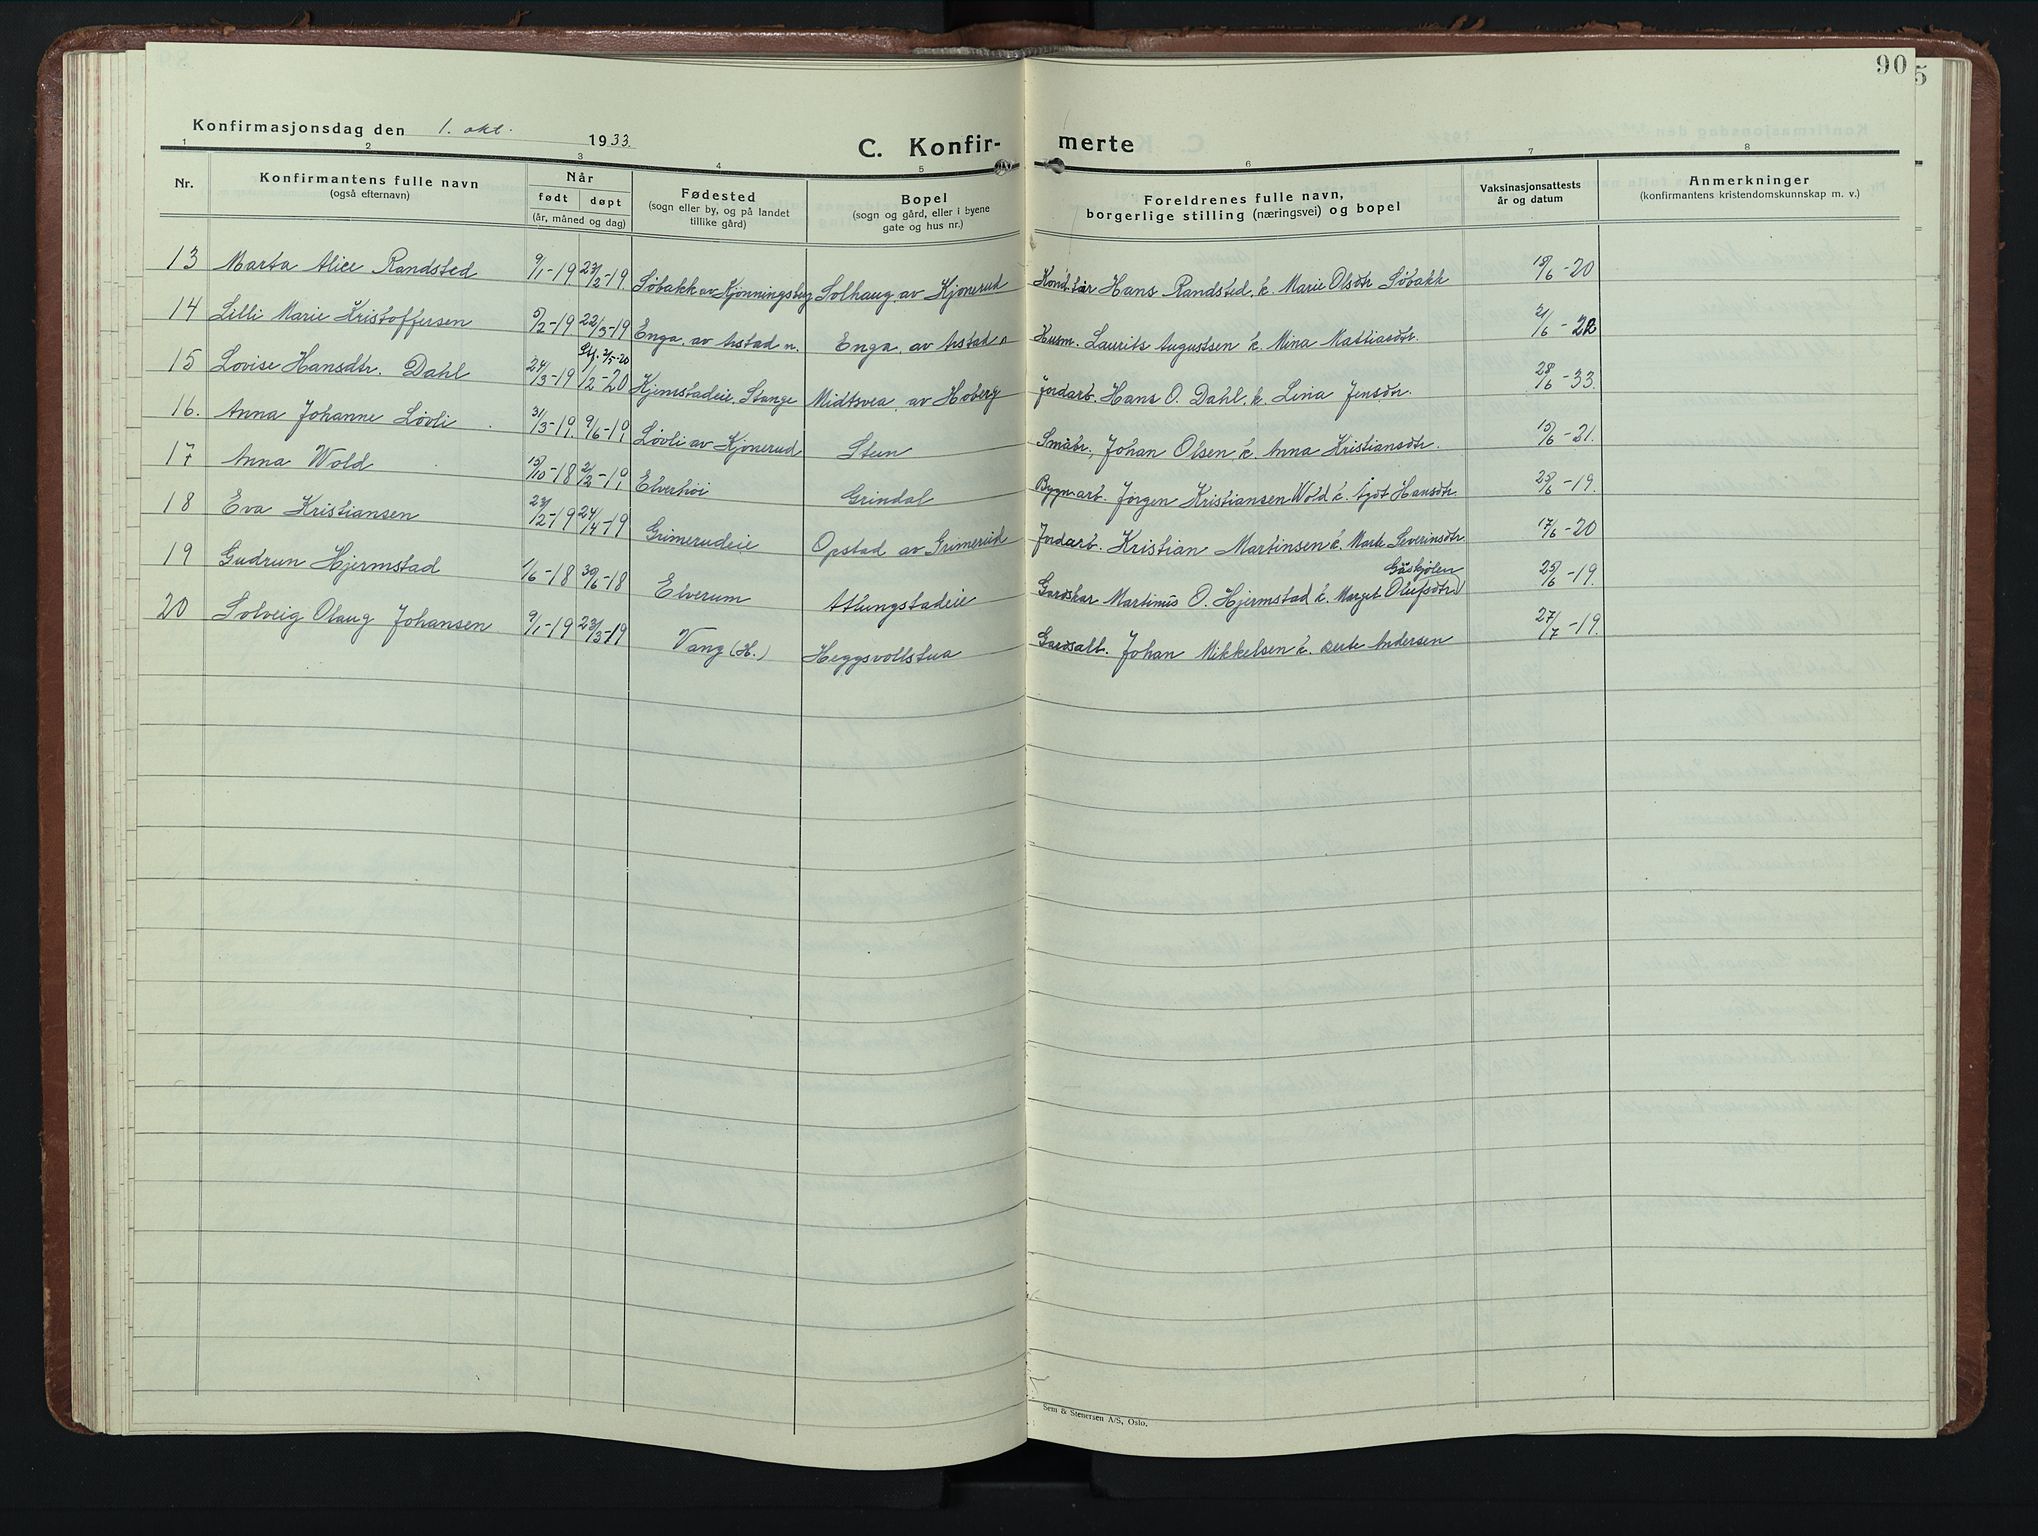 90
5
Konfirmasjonsdag den 1. okt. 1933
C. Konfir- merte
1 2 3 4 5 6 7 8
Nr. Konfirmantens fulle navn (også efternavn) Når født døpt (år, måned og dag) Fødested (sogn eller by, og på landet tillike gård) Bopel (sogn og gård, eller i byene gate og hus nr.) Foreldrenes fulle navn, borgerlige stilling (næringsvei) og bopel Vaksinasjonsattests år og datum Anmerkninger (konfirmantens kristendomskunnskap m. v.)
13 Marta Alice Randsted 9/1-19 23/2-19 Søbakk av Kjonningsberg Solhaug av Kjonerud Hans Randsted. k. Marie Olsdtr Søbakk 15/6-20
14 Lilli Marie Kristoffersen 5/2-19 22/3-19 Enga, av Arstad n. Enga, av Arstad n Husm. Laurits Augustsen k. Mina Mattiasdtr. 21/6-22
15 Lovise Hansdtr. Dahl 24/3-19 1/2-20 Stf. 2/5-20 Kjemstadeie, Stange Midtsvea, av Hoberg Jordarb. Hans O. Dahl, k. Lina Jensdtr. 28/6-33.
16. Anna Johanne Løvli 31/3-19. 9/6-19 Løvli av Kjonerud Steen Småbr., Johan Olsen k. Anna Kristiansdtr. 15/6-21.
17 Anna Wold 15/10-18 2/2-19 Elverhøi Grindal Bygn.arb. Jørgen Kristiansen Wold k. Agot Hansdtr 28/6-19.
18 Eva Kristiansen 23/2-19 24/4-19 Grimerudeie Opstad av Grimerud Jordarb. Kristian Martinsen k. Marte Severinsdtr. 17/6-20
19 Gudrun Hjermstad 1/6-18 30/6-18 Elverum Atlungstadeie Gardskar Martinus O. Hjermstad k. Margit Olufsdtr Gåskjølen 25/6-19.
20 Solveig Olaug Johansen 9/1-19 23/3-19 Vang (H.) Heggsvollstua Gardsarb. Johan Mikkelsen k. Berte Andersen 27/7-19.
Sem & Stenersen A/S, Oslo.